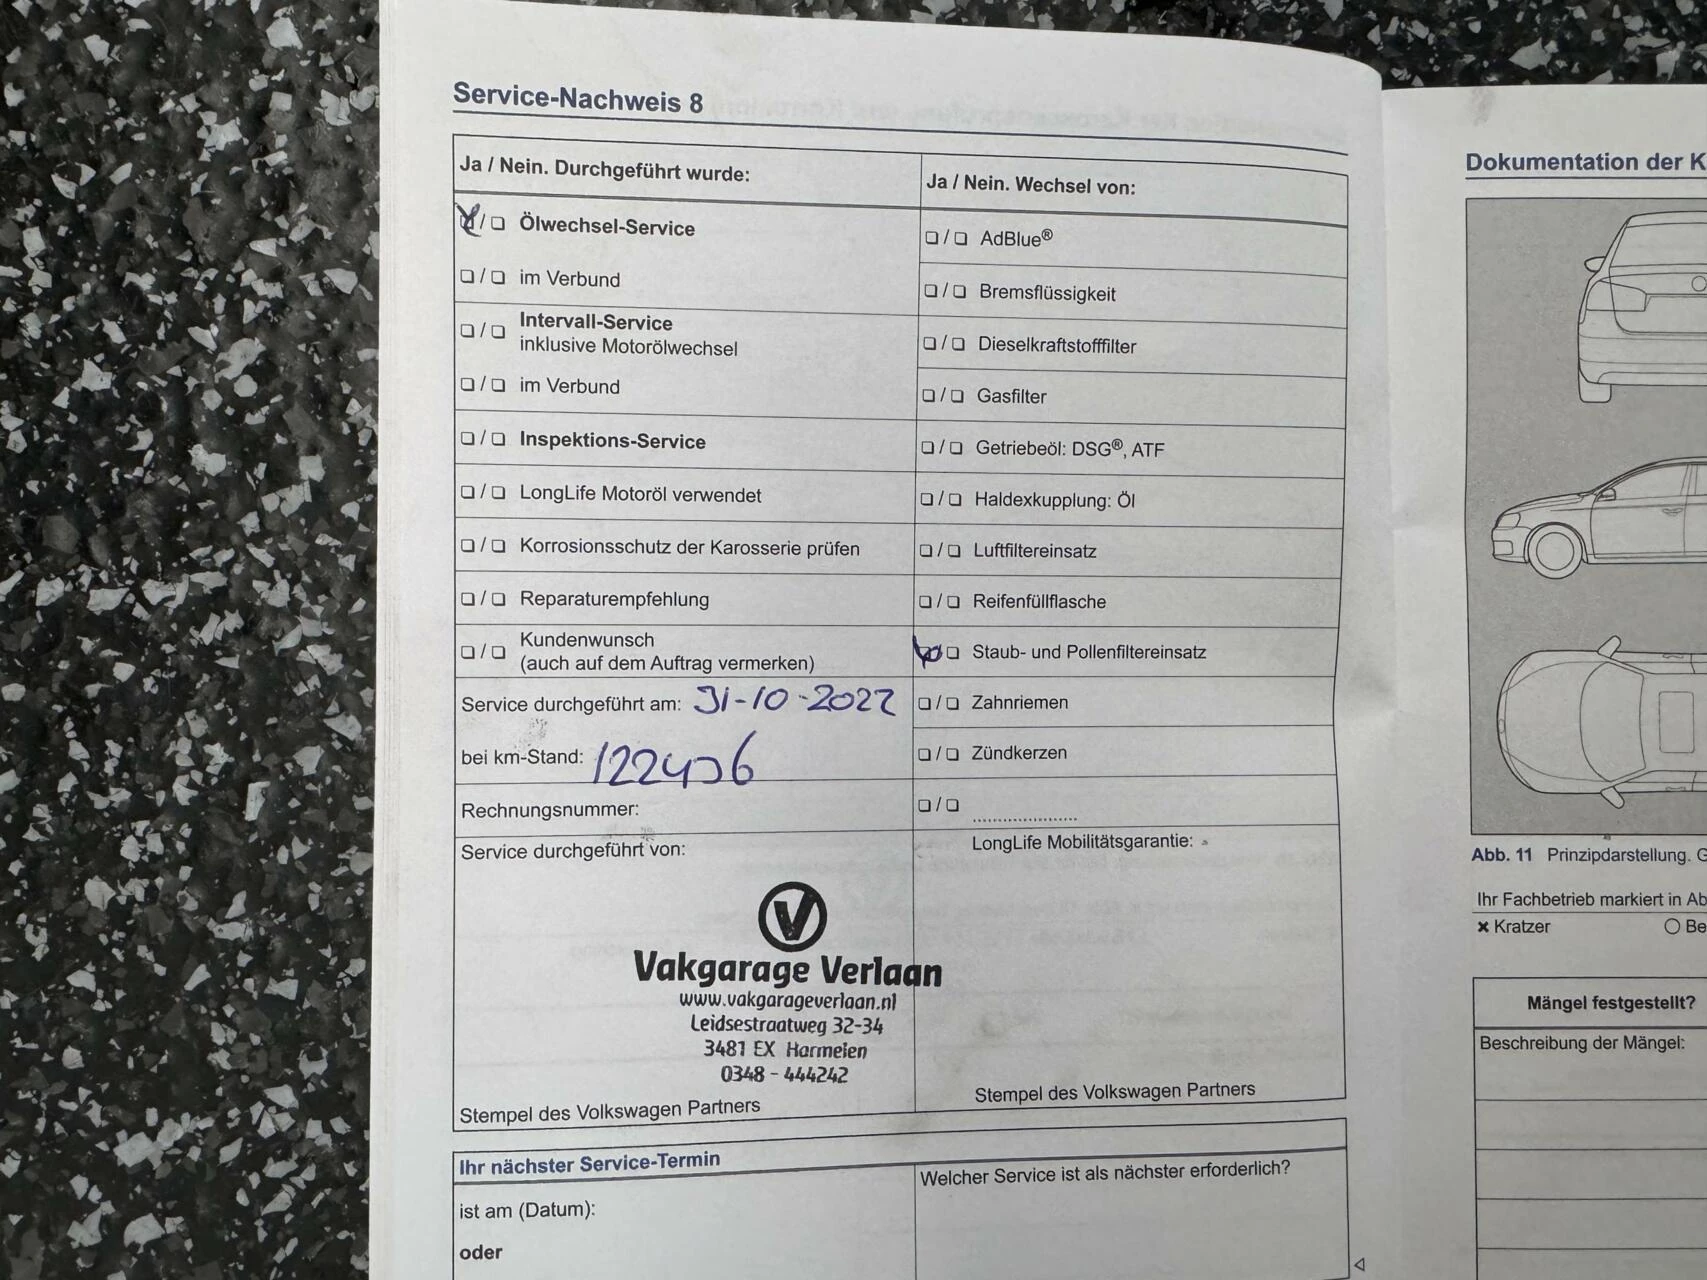 Service-Nachweis 8
Ja / Nein. Durchgeführt wurde:
❏ / ❏ Ölwechsel-Service
❏ / ❏ im Verbund
❏ / ❏ Intervall-Service
inklusive Motorölwechsel
❏ / ❏ im Verbund
❏ / ❏ Inspektions-Service
❏ / ❏ LongLife Motoröl verwendet
❏ / ❏ Korrosionsschutz der Karosserie prüfen
❏ / ❏ Reparaturempfehlung
❏ / ❏ Kundenwunsch
(auch auf dem Auftrag vermerken)
Service durchgeführt am: 31-10-2022
bei km-Stand:
Rechnungsnummer:
Service durchgeführt von:
V
Vakgarage Verlaan
www.vakgarageverlaan.nl
Leidsestraatweg 32-34
3481 EX Harmelen
0348 - 444242
Stempel des Volkswagen Partners
Ja / Nein. Wechsel von:
❏ / ❏ AdBlue®
❏ / ❏ Bremsflüssigkeit
❏ / ❏ Dieselkraftstofffilter
❏ / ❏ Gasfilter
❏ / ❏ Getriebeöl: DSG®, ATF
❏ / ❏ Haldexkupplung: Öl
❏ / ❏ Luftfiltereinsatz
❏ / ❏ Reifenfüllflasche
❏ / ❏ Staub- und Pollenfiltereinsatz
❏ / ❏ Zahnriemen
❏ / ❏ Zündkerzen
❏ / ❏ ....................
LongLife Mobilitätsgarantie:
Stempel des Volkswagen Partners
Ihr nächster Service-Termin
ist am (Datum):
oder
Welcher Service ist als nächster erforderlich?
Dokumentation der K
Abb. 11 Prinzipdarstellung. G
Ihr Fachbetrieb markiert in Ab
× Kratzer
○ Be
Mängel festgestellt?
Beschreibung der Mängel: